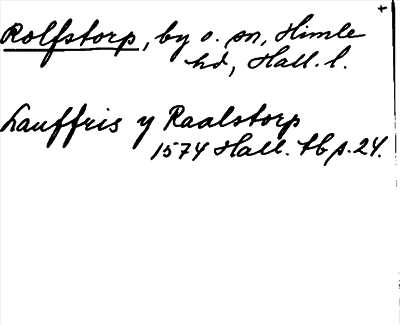 +
Rolfstorp, by o. sn, Himle
hd, Hall. l.
Lauffris y Raalstorp
1574 Hall. tb p. 24.